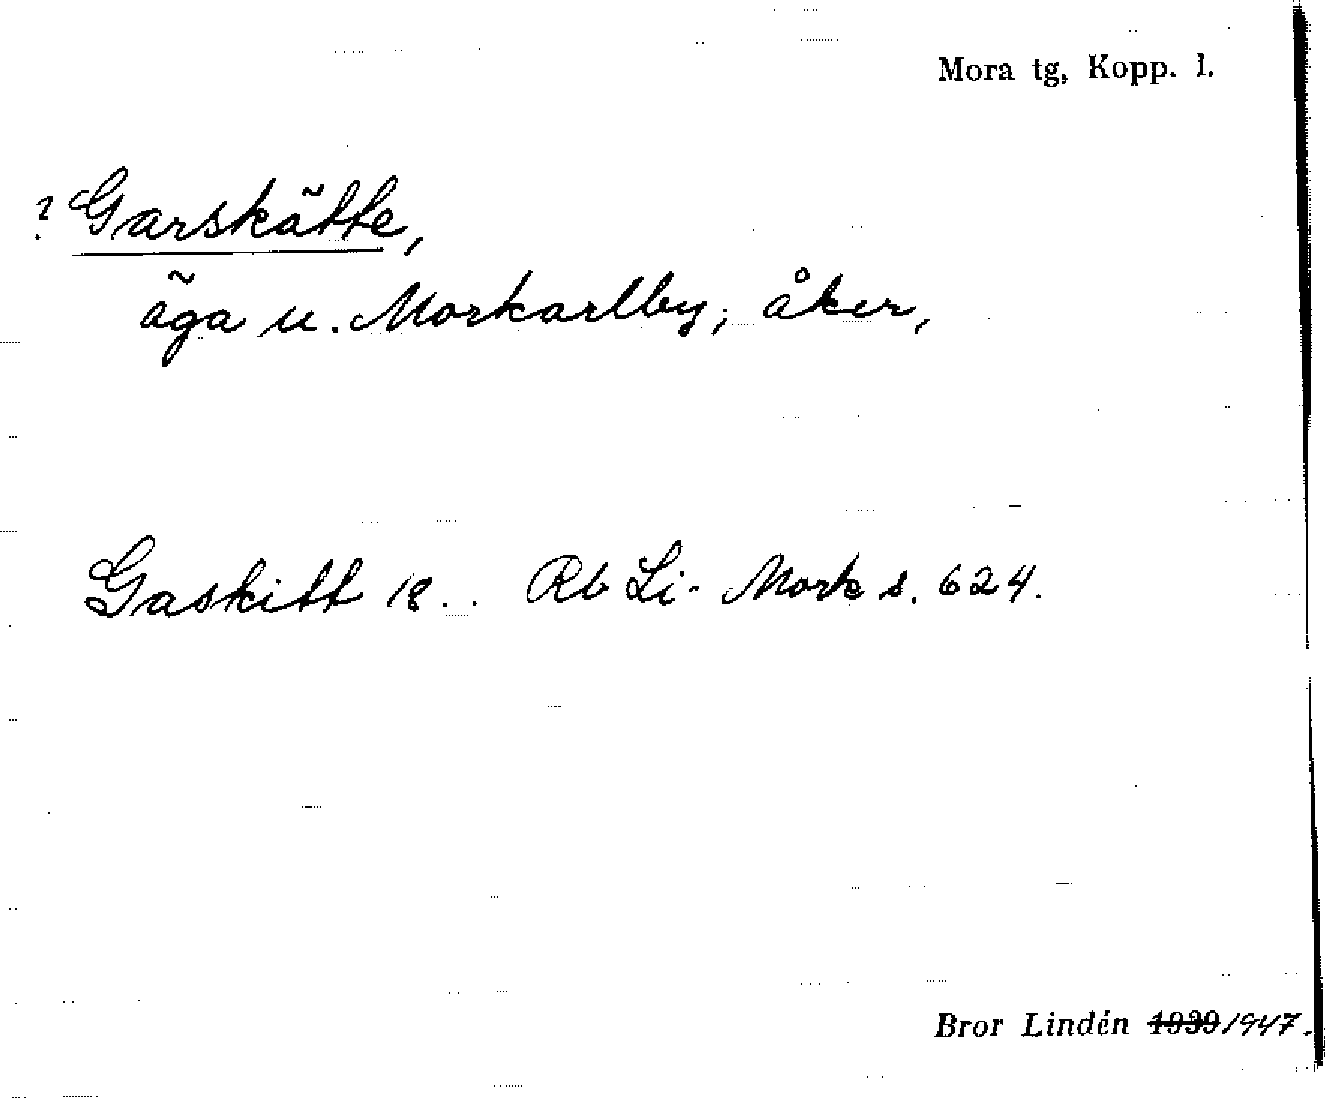 Mora tg, Kopp. l.
? Garskätte,
äga u. Morkarlby, åker,
Gaskitt 18.. Rb Li-Mork s. 624.
Bror Lindén 1939 1947.